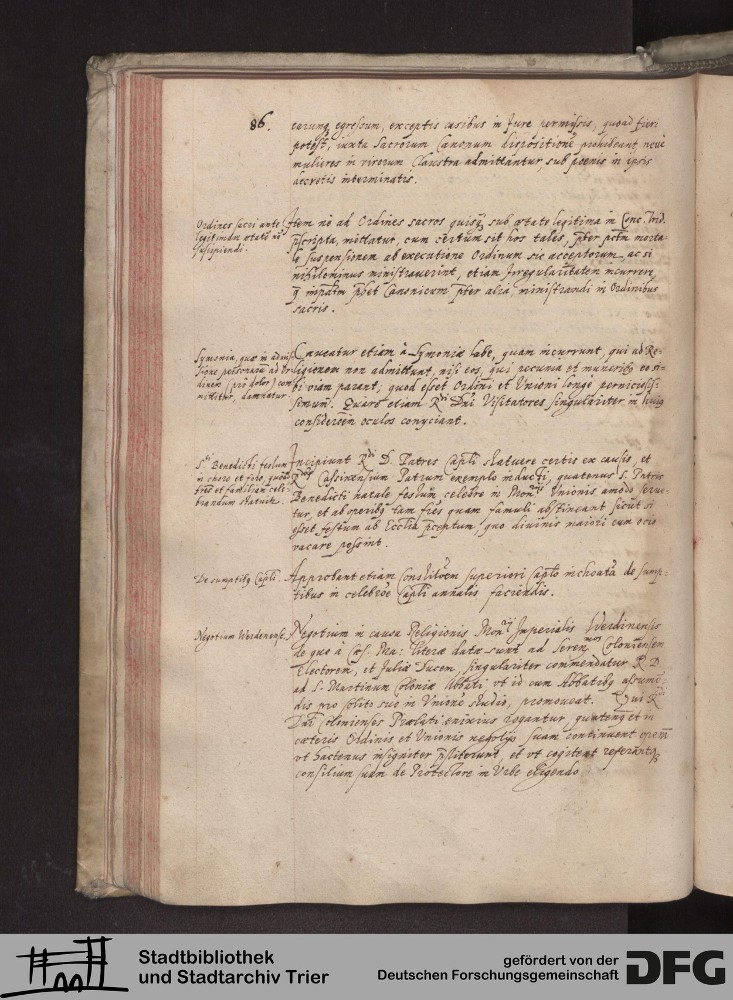 86.
earumq egressum, exceptis casibus in Jure permissis, quoad fieri
potest, iuxta Sacrorum Canonum dispositione prohibeant, neue
mulieres in virorum Claustra admittantur, sub poenis in ipsis
decretis interminatis.
Ordines sacri ante
legitimam ætate nõ
suscipiendi.
Item nõ ad Ordines sacros quisq, sub ætate legitima in Conc. Trid.
pscripta, mittatur, cum certum sit hos tales, pter pctm morta-
le suspensionem ab executione Ordinum sic acceptorum, ac si
nihilominus ministrauerint, etiam Irregularitatem incurrere,
q impdtm pbet Canonicum pter alia, ministrandi in Ordinibus
sacris.
Symonia, quæ in admis-
sione personarū ad Or-
dinem (prò dolor) com-
mittitur, damnatur.
Caueatur etiam à Symoniæ labe, quam incurrunt, qui ad Re-
ligionem non admittunt, nisi eos, qui pecunia et muneribq eo si-
bi viam parant; quod esset Ordini et Unioni longè perniciosis-
simum. Quare etiam Rdi Dni Visitatores singulariter in huiq
considerōem oculos conyciant.
S.ti Benedicti festum
in choro et foro, quoad
fres et familiam cele-
brandum statuit.
Incipiunt Rdi D. Patres Capli statuere certis ex causis, et
Rmoru Cassinensium Patrum exemplo inducti, quatenus S. Patris
Benedicti natale festum celebre in Monriis Unionis amodo serue-
tur, et ab operibq tam fres quam famuli abstineant sicut si
esset festum ab Ecclia pceptum, quo diuinis maiori cum ocio
vacare possint.
De sumptibq Capli.
Approbant etiam Consilium superiori Caplo inchoatū de sump-
tibus in celebrõe Capli annalis faciendis.
Negotium Werdenense.
Negotium in causa Religionis Monrij Imperialis Werdinensis
de quo à Cæs. Ma: literæ datæ sunt ad Serenmos Coloniensem
Electorem, et Juliæ Ducem, singulariter commendatur R. D.
ad S. Martinum Coloniæ Abbati, vt id cum Abbatibq assumē-
dis pro solito suo in Unionē studio, promoueat. Qui Rdi
Dni Colonienses Prælati enixius rogantur, quatenq et in
cæteris Ordinis et Unionis negotijs suam continuent operā
vt hactenus insigniter pstiterunt, et vt cogitent referantq
consilium suum de Protectore in Vrbe eligendo
Stadtbibliothek
und Stadtarchiv Trier
gefördert von der
Deutschen Forschungsgemeinschaft
DFG